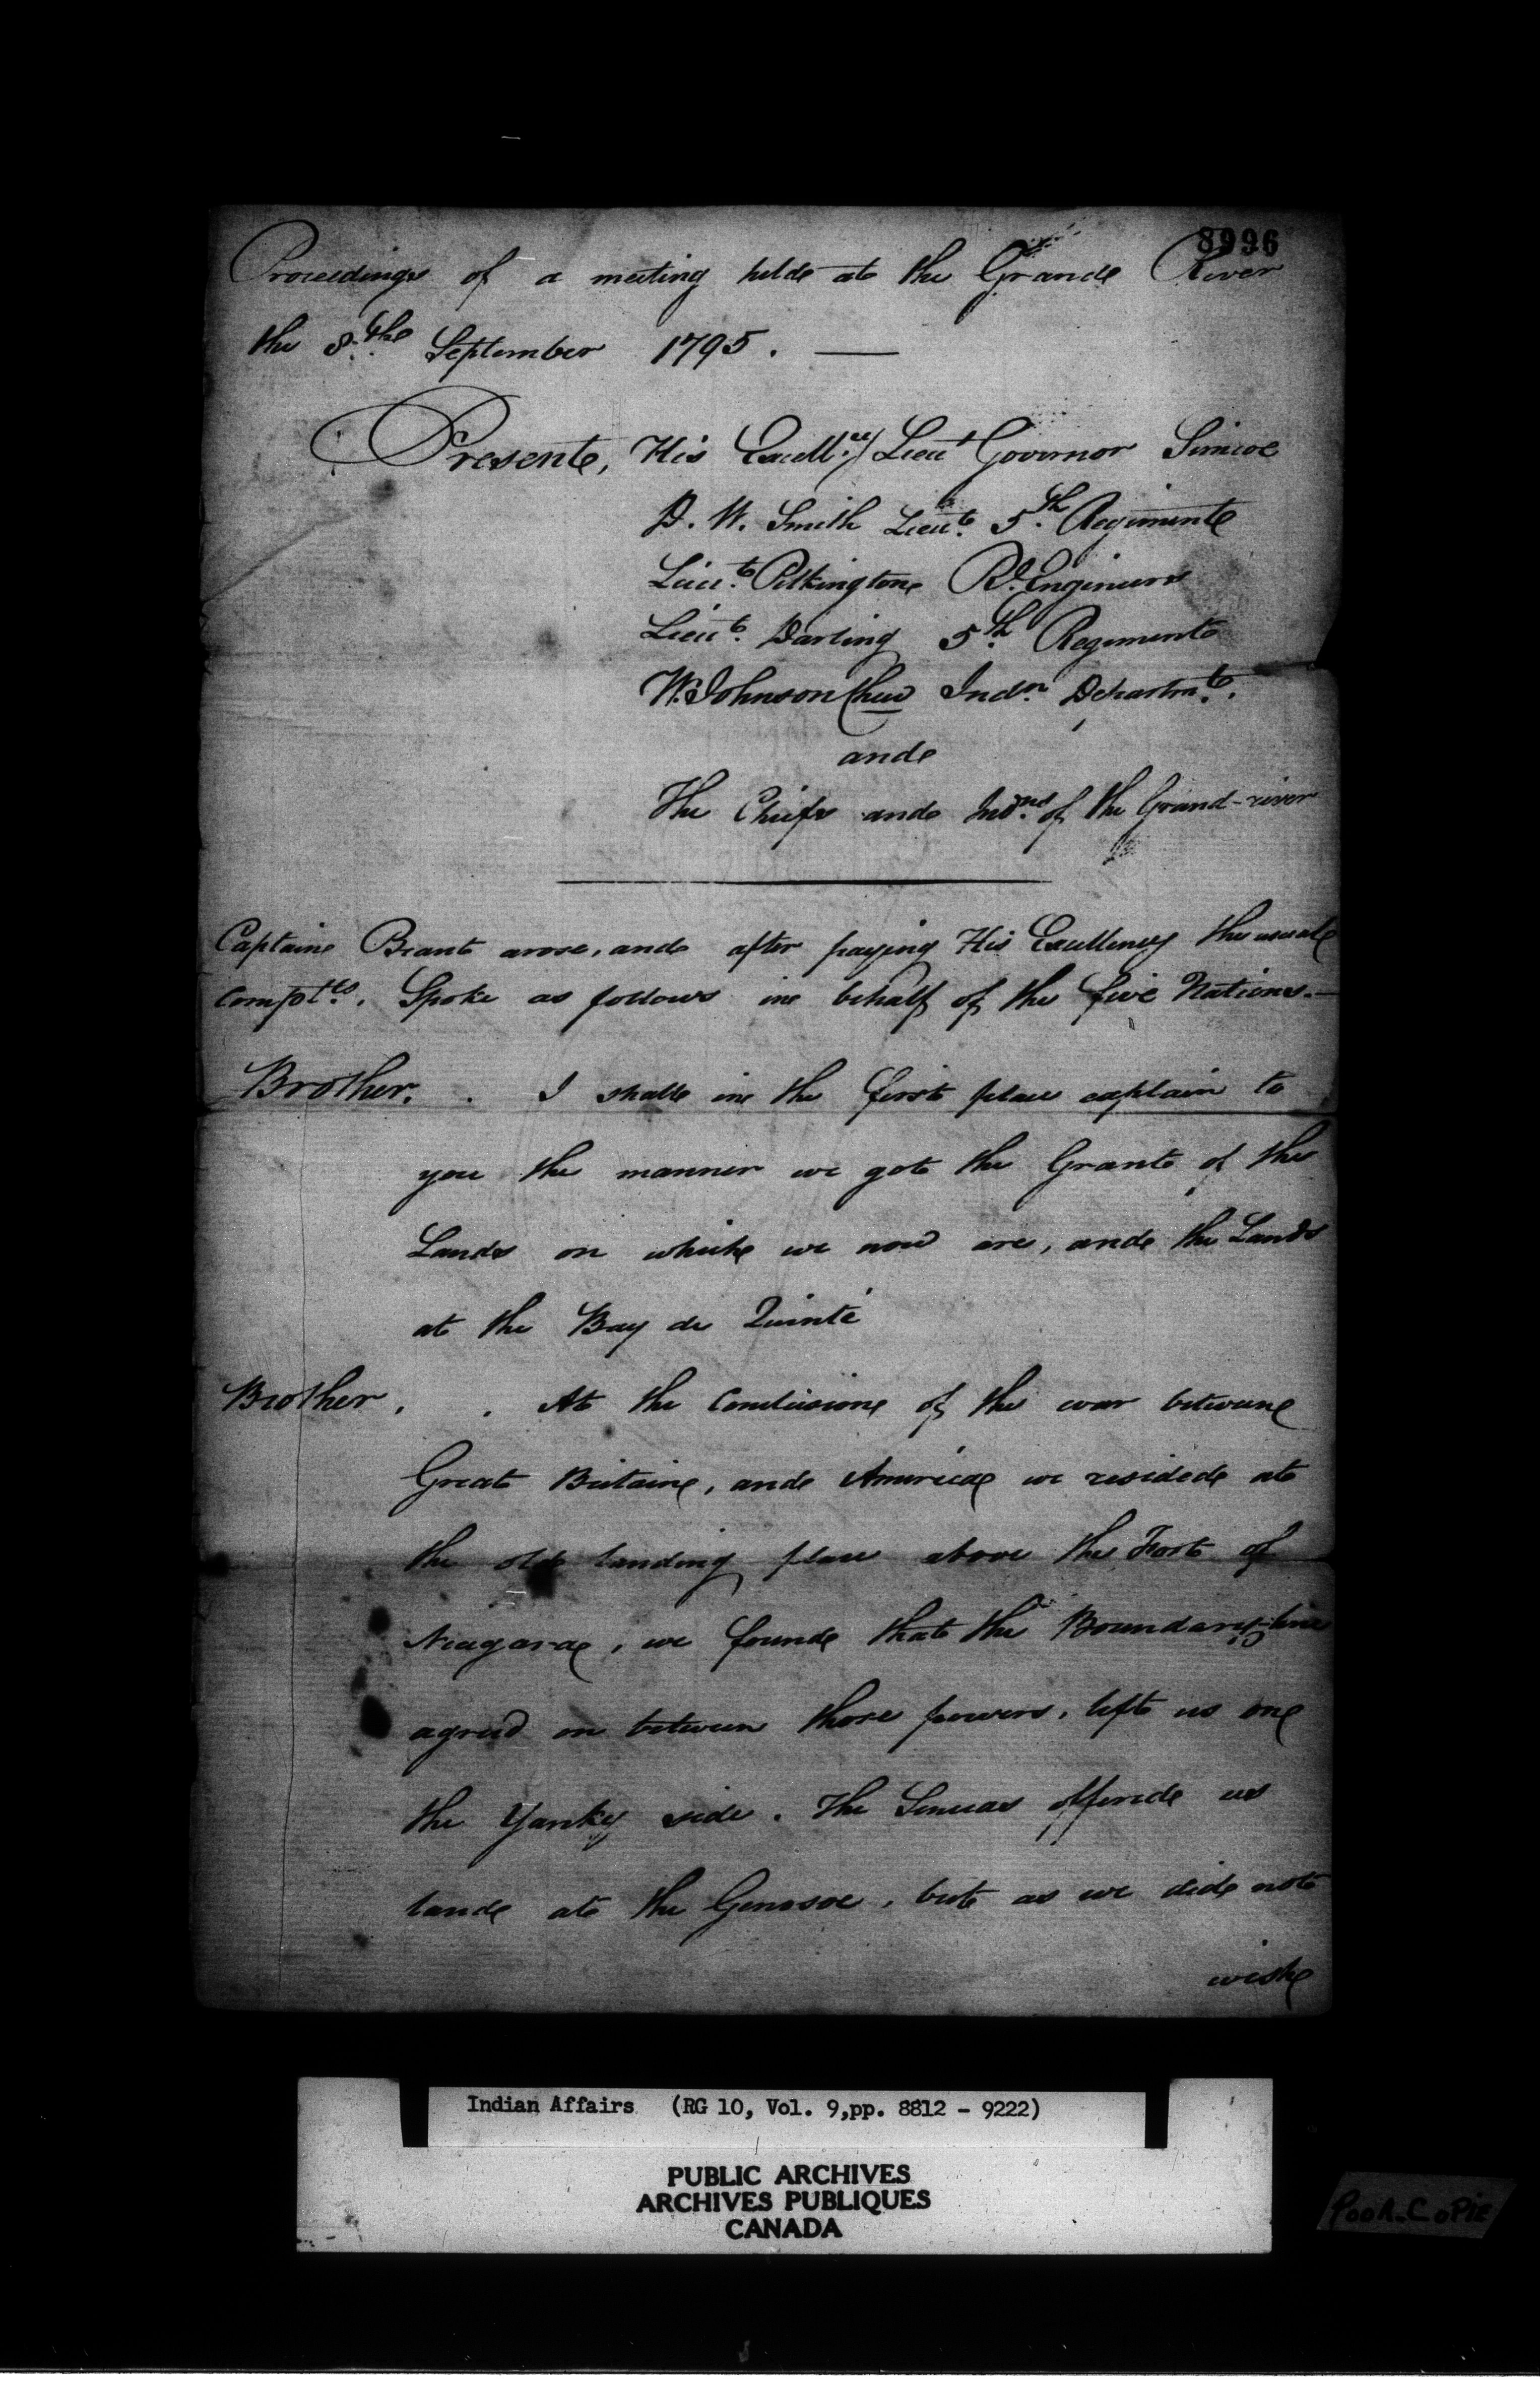 8996
Proceedings of a meeting held at the Grand River
the 8.th September 1795. —
Present, His Excell.cy Lieut Governor Simcoe
D. W. Smith Lieu.t 5.th Regiment
Lieu.t Pilkington R.l Engineers
Lieu.t Darling 5.th Regiment
W. Johnson Chew Ind.n Departm.t.
and
The Chiefs and Ind.ns of the Grand-river
Captain Brant arose, and after paying His Excellency the usual
Comp.lts. Spoke as follows in behalf of the five Nations.—
Brother. . I shall in the first place explain to
you the manner we got the Grant of the
Lands on which we now are, and the Lands
at the Bay de Quinté
Brother, . At the Conclusion of the war between
Great Britain, and America we resided at
the old landing place above the Fort of
Niagara, we found that the Boundary-line
agreed on between those powers, left us on
the Yanky side. The Senecas offered us
land at the Genesoe, but as we did not
wish
Indian Affairs (RG 10, Vol. 9,pp. 8812 - 9222)
PUBLIC ARCHIVES
ARCHIVES PUBLIQUES
CANADA
Poor-CoPie